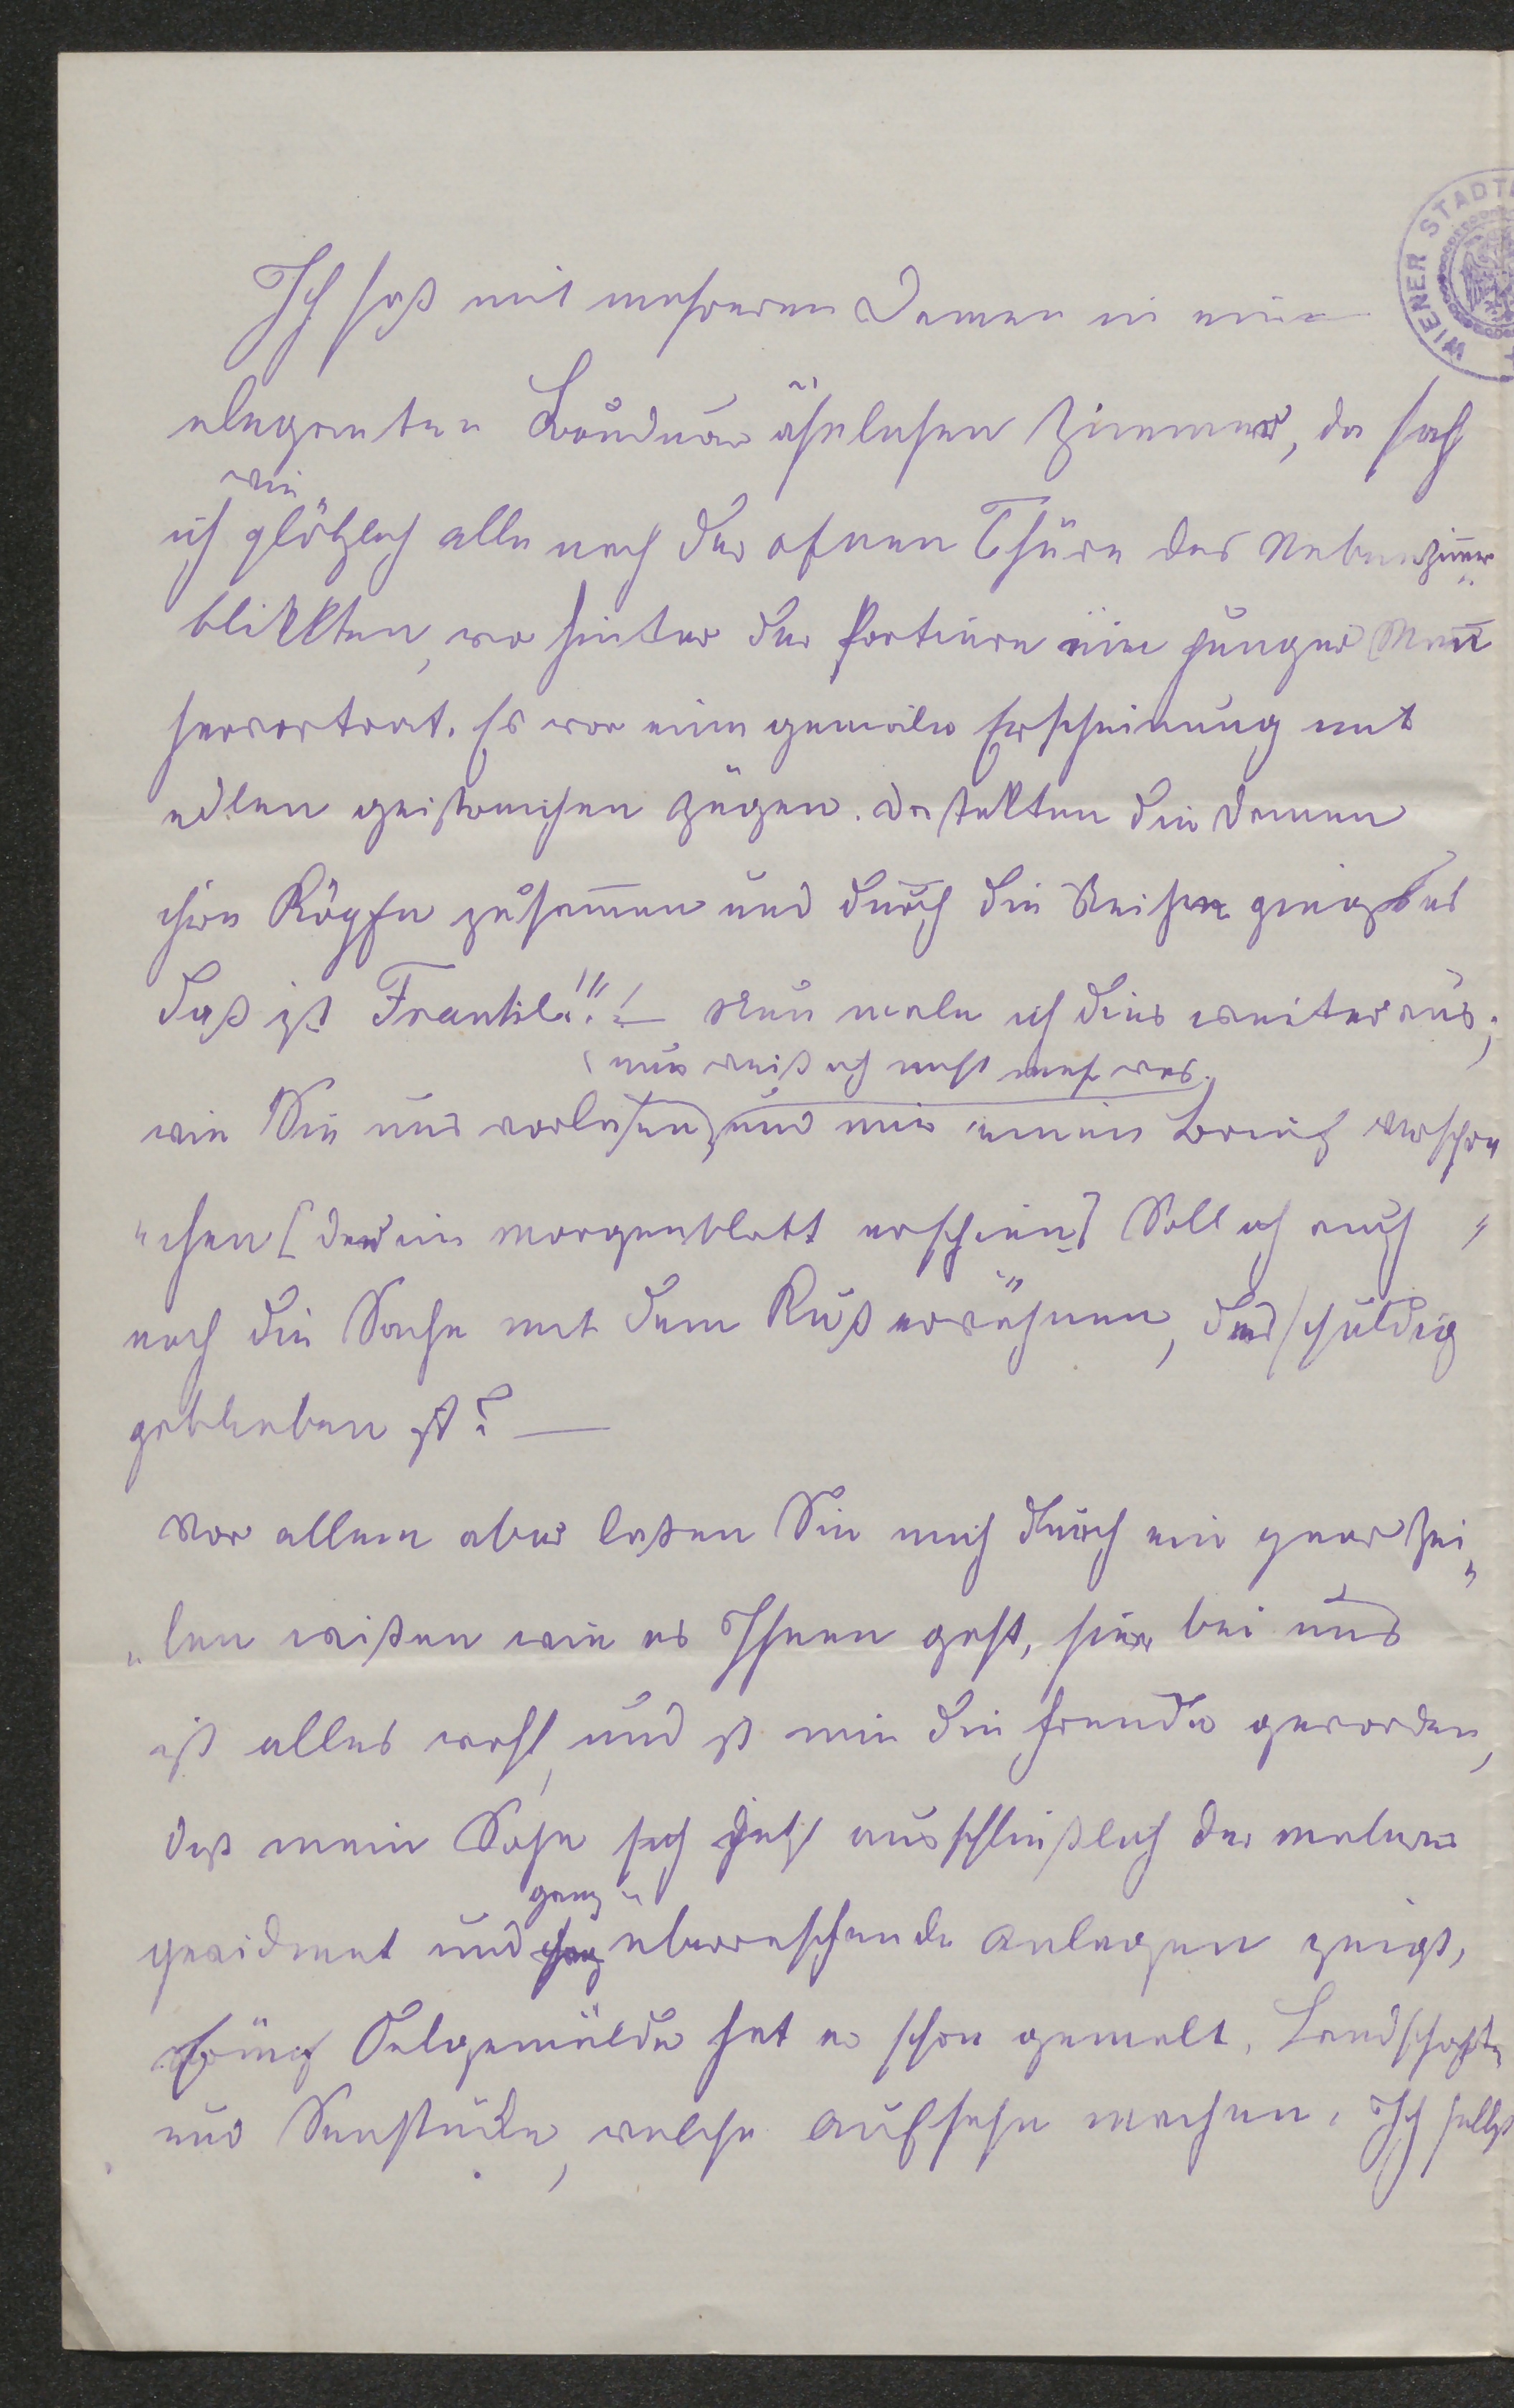 WIENER STADT
Ich saß mit mehreren Damen in eine
eleganten Bouduar ähnlichen Zimmer, da sah
wie
ich plötzlich alle nach der ofnen Thüre des Nebenzimer
blikkten, wo hinter der Portiere ein junger Mañ
hervortrat. Es war eine geniale Erscheinung mit
edlen geistreichen Zügen. Da stekkten die Damen
ihre Köpfe zusam̄en und durch die Reihen ging es
Daß ist Frankl!!! — Nun male ich dies weiter aus;
(nun weiß ich nicht mehr was.
wie Sie uns vorlasen, und mir einen Brief verspra
"chen [der im Morgenblatt erschien] Soll ich auch
noch die Sache mit dem Kuß erwähnen, der schuldig
geblieben ist? —
Vor allem aber laßen Sie mich durch ein paar Zei„
„len wißen wie es Ihnen geht, hier bei uns
ist alles wohl, und ist mir die Freude geworden,
daß mein Sohn sich jetzt ausschließlich der Malerei
ganz
gewidmet und überraschende Anlagen zeigt,
Fünf Oelgemälde hat er schon gemalt, Landschaft„
und Seestücke, welche Aufsehn machen. Ich selbst